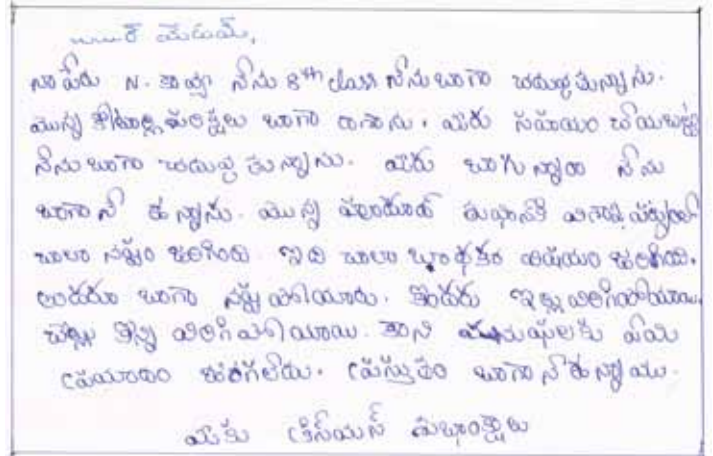 మేడమ్,
నా పేరు N. కావ్య నేను 8th class నేను బాగా చదువుతున్నాను.
మొన్న పరిక్షలు బాగా రాశాను. మీరు సహయం చేయబట్టి
నేను బాగా చదువుతున్నాను. మీరు బాగున్నారా నేను
బాగానే ఉన్నాను. మొన్న హుదూద్ తుఫానుకి విశాఖపట్నంలో
చాలా నష్టం జరిగింది ఇది చాలా బాధకరం విషయం జరిగింది.
అందరూ బాగా నష్టపోయారు. కొందరు ఇల్లు విరిగిపోయాయి.
చెట్లు కొన్ని విరిగిపోయాయి. కాని మనుషులకు ఏమి
ప్రమాదం జరగలేదు. ప్రస్తుతం బాగానే ఉన్నాము.
మీకు క్రిస్మస్ శుభాంక్షాలు